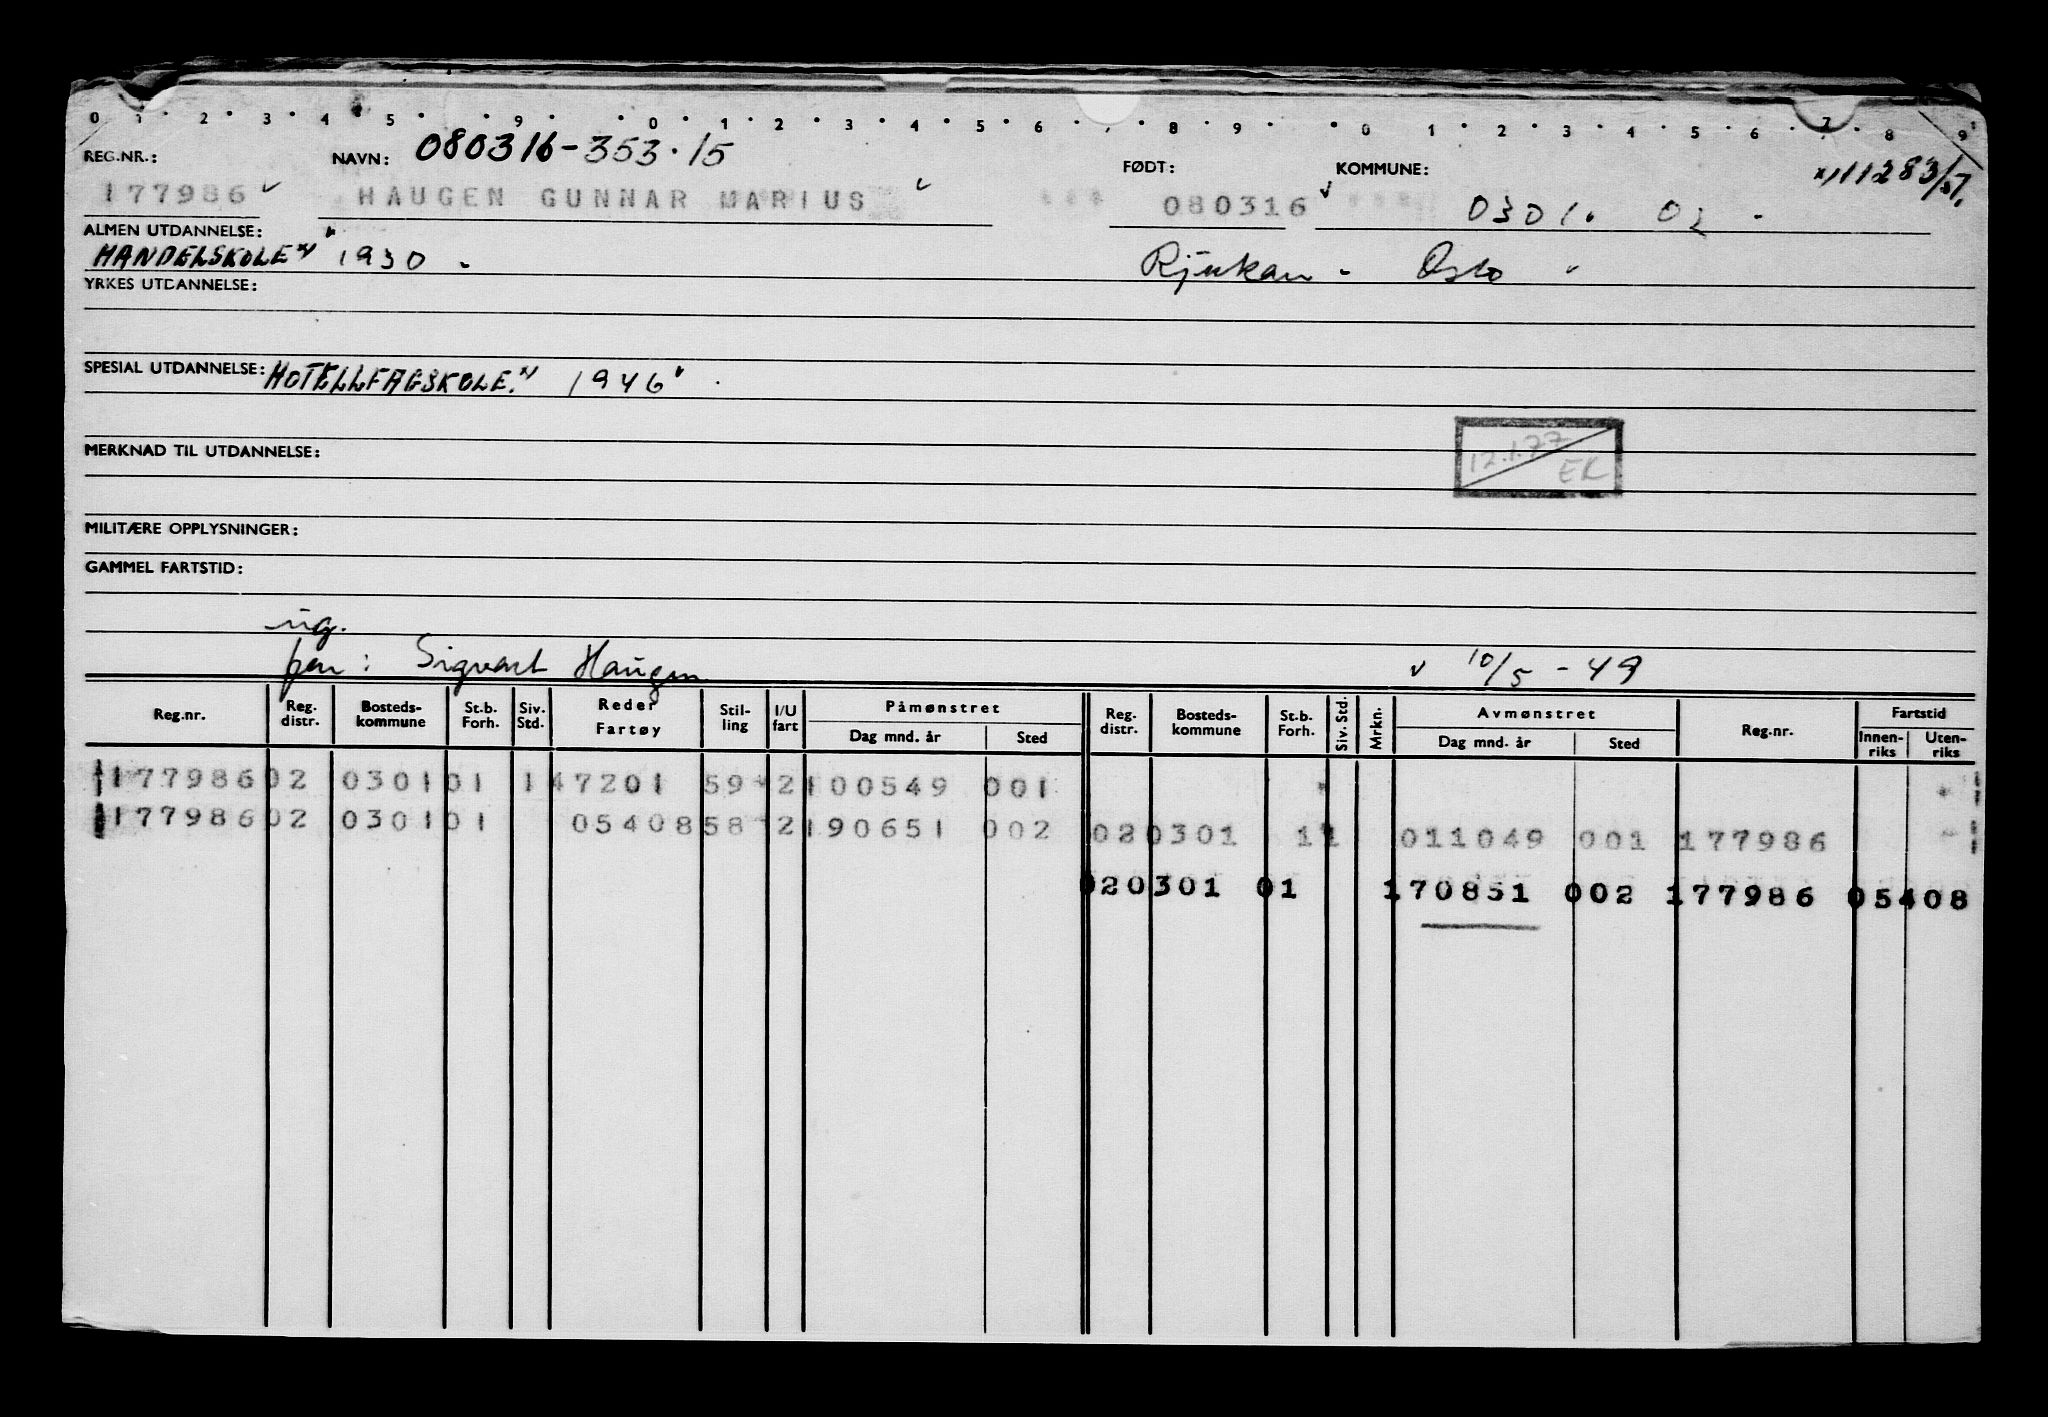 0 1 2 3 4 5 9 0 1 2 3 4 5 6 8 9 0 1 2 3 4 5 6 7 8 9
REG.NR.: NAVN: 080316-353.15 FØDT: KOMMUNE: 111283/57.
177986 HAUGEN GUNNAR MARIUS 080316 0301. 02 -
ALMEN UTDANNELSE:
HANDELSKOLE 1930 - Rjukan - Oslo
YRKES UTDANNELSE:
SPESIAL UTDANNELSE: HOTELLFAGSKOLE. 1946
12.1.77
MERKNAD TIL UTDANNELSE: EK
MILITÆRE OPPLYSNINGER:
GAMMEL FARTSTID:
ug.
far: Sigvart Haugen 10/5 - 49
Reg.nr. Reg. distr. Bosteds-kommune St.b. Forh. Siv. Std. Reder Fartøy Stil-ling I/U fart Påmønstret Dag mnd. år Sted Reg. distr. Bosteds-kommune St.b. Forh. Siv. Std. Mrkn. Avmønstret Dag mnd. år Sted Reg.nr. Fartstid Innen-riks Uten-riks
177986 02 0301 01 1 47201 59 2 100549 001
177986 02 0301 01 05408 58 2 190651 002 02 0301 11 011049 001 177986
02 0301 01 170851 002 177986 05408